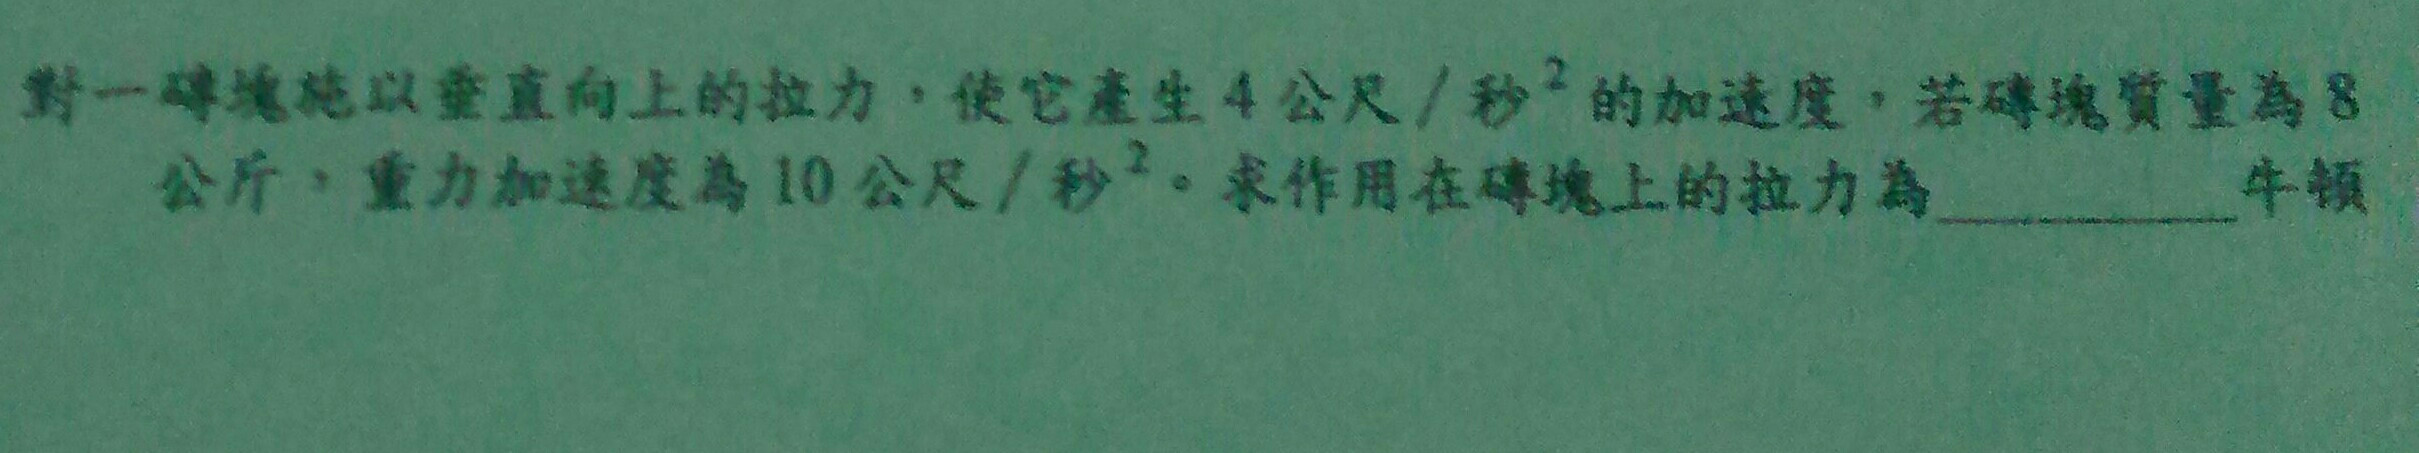 對一磚塊施以垂直向上的拉力，使它產生4公尺/秒²的加速度，若磚塊質量為8
公斤，重力加速度為10公尺/秒²。求作用在磚塊上的拉力為__________牛頓